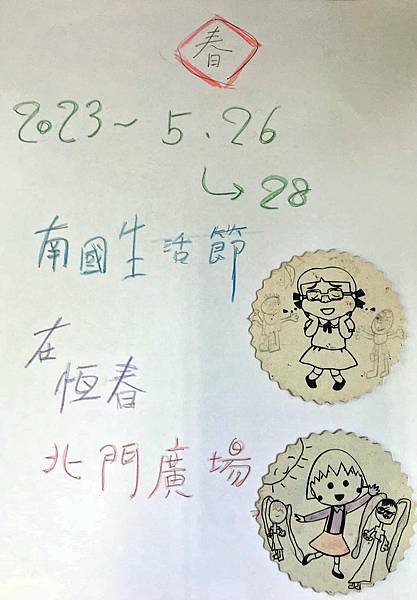 春
2023~5.26
↳28
南國生活節
在
恆春
北門廣場